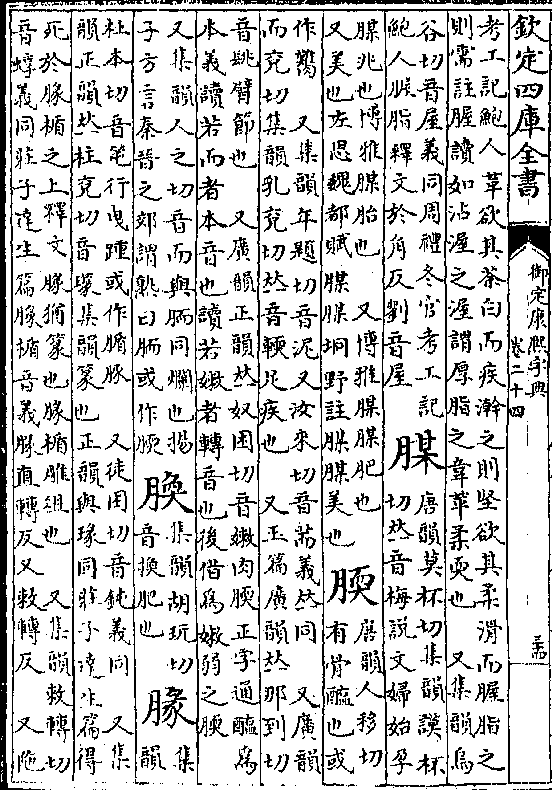 欽定四庫全書
御定康熙字典
卷二十四
考工記鮑人 革欲其荼白而疾澣之則堅欲其柔滑而腛脂之
則需註腛讀如沾渥之渥謂厚脂之韋革柔耎也 又集韻烏
谷切音屋義同周禮冬官考工記
鮑人腛脂釋文於角反劉音屋
腜
唐韻莫杯切集韻謨杯
切𠀤音梅說文婦始孕
腜兆也博雅腜胎也 又博雅腜腜肥也
又美也左思魏都賦腜腜坰野註腜腜美也
腝
唐韻人移切
有骨醢也或
作臡 又集韻年題切音泥又汝來切音荋義𠀤同 又廣韻
而兗切集韻乳兗切𠀤音輭足疾也 又玉篇廣韻𠀤那到切
音臂節也 又廣韻正韻𠀤奴困切音嫩肉腝正字通醢爲
本義讀若而者本音也讀若嫩者轉音也後借爲嫩弱之腝
又集韻人之切音而與胹同爛也揚
子方言秦晉之郊謂熟曰胹或作腝
䐠
集韻胡玩切
音換肥也
腞
集
韻
杜本切音行曳踵或作腯豚 又徒困切音鈍義同 又集
韻正韻𠀤柱兗切音瑑集韻篆也正韻與瑑同莊子達生篇得
死於腞楯之上釋文腞猶篆也腞楯雕俎也 又集韻敕轉切
音義同莊子達生篇腞楯音義腞直轉反又敕轉反 又陁